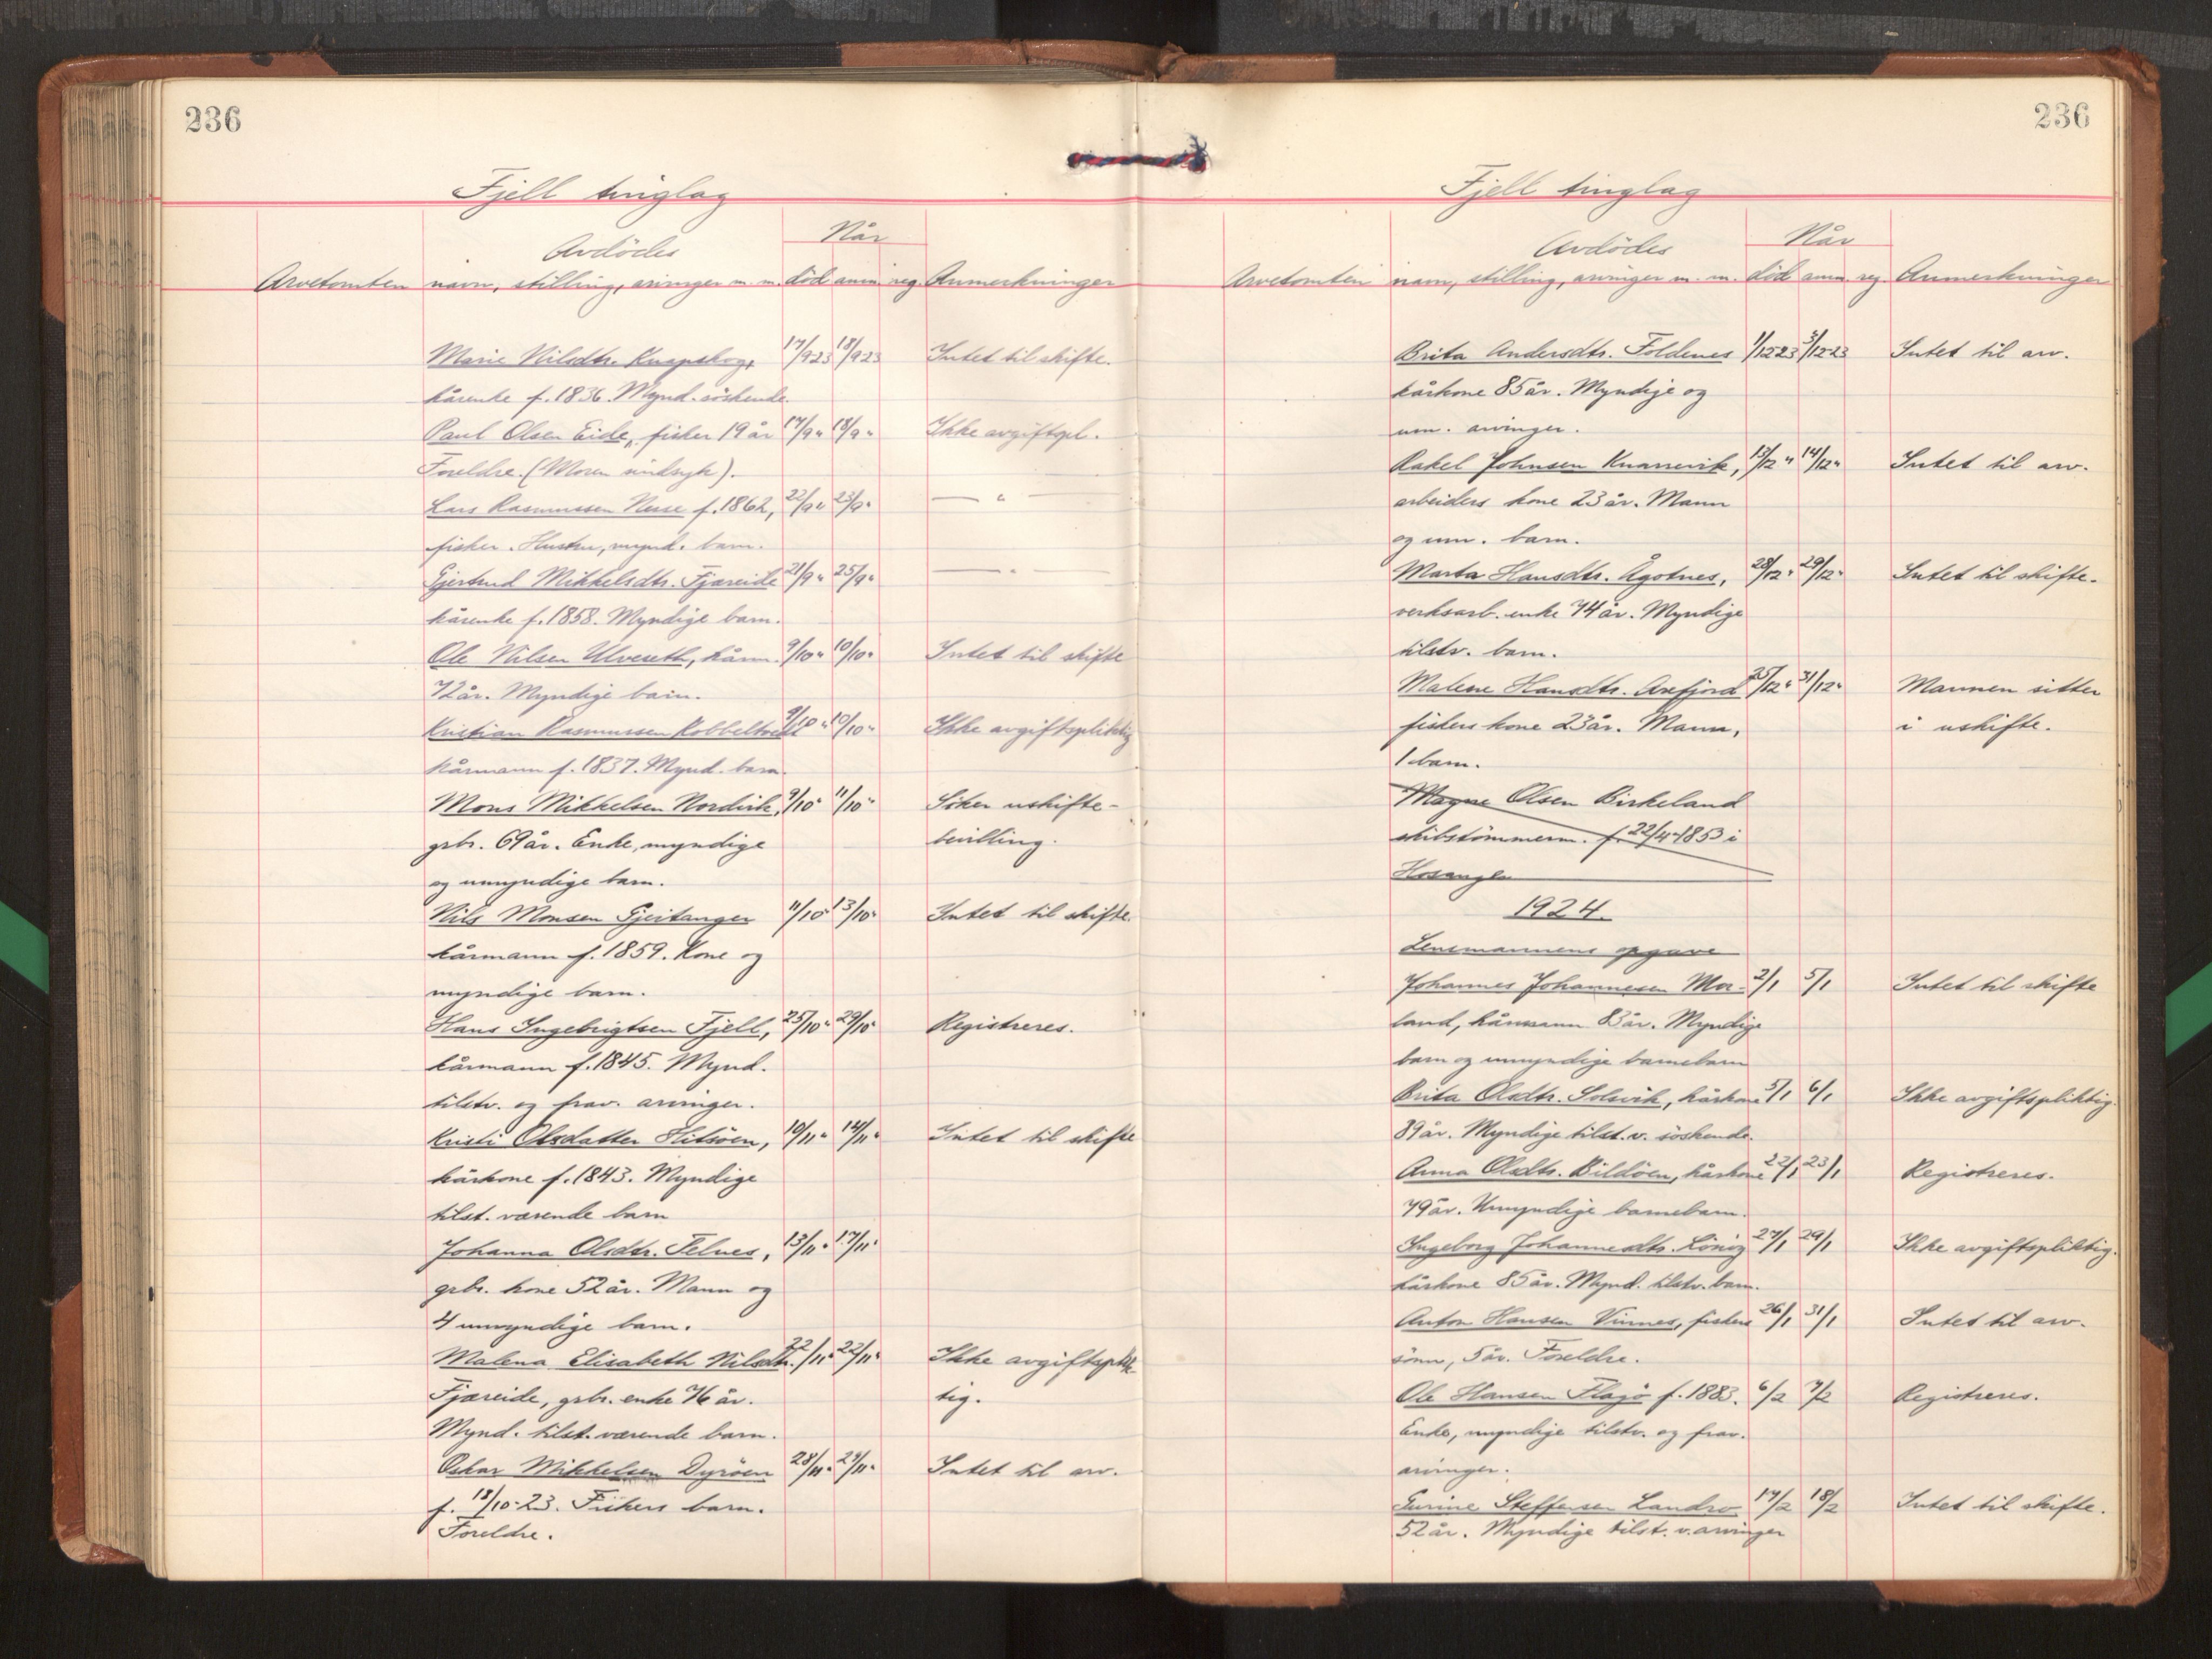 236
Fjell tinglag
Avdödes
Når
Arvetomten navn, stilling, arvinger m. m. död anm. reg. Anmerkninger
Marie Nilsdtr. Knapskog, 17/9 23 18/9 23 Intet til skifte.
kårenke f. 1836. Mynd. söskende.
Paul Olsen Eide, fisker 19 år 17/9 " 18/9 " Ikke avgiftspl.
Foreldre. (Moren sindsyk).
Lars Rasmussen Nesse f. 1862, 22/9 " 23/9 " — " —
fisker. Hustru, mynd. barn.
Gjertrud Mikkelsdtr. Fjæreide 21/9 " 25/9 " — " —
kårenke f. 1858. Myndige barn.
Ole Nilsen Ulveseth, kårm. 9/10 " 10/10 " Intet til skifte
72 år. Myndige barn.
Kristian Rasmussen Kobbeltvedt 9/10 " 10/10 " Ikke avgiftspliktig
kårmann f. 1837. Mynd. barn.
Mons Mikkelsen Nordvik, 9/10 " 11/10 " Söker uskifte-
grbr. 69 år. Enke, myndige bevilling.
og umyndige barn.
Nils Monsen Gjeitanger 11/10 " 13/10 " Intet til skifte.
kårmann f. 1859. Kone og
myndige barn.
Hans Ingebrigtsen Fjell, 25/10 " 29/10 " Registreres.
kårmann f. 1845. Mynd.
tilstv. og frav. arvinger.
Kristi Olsdatter Hitsöen, 10/11 " 14/11 " Intet til skifte
kårkone f. 1843. Myndige
tilst. værende barn
Johanna Olsdtr. Telnes, 13/11 " 17/11 "
grbr. kone 52 år. Mann og
4 umyndige barn.
Malena Elisabeth Nilsdtr. 22/11 " 22/11 " Ikke avgiftsplik-
Fjæreide, grbr. enke 76 år. tig.
Mynd. tilst. værende barn.
Oskar Mikkelsen Dyröen 28/11 " 29/11 " Intet til arv.
f. 18/10-23. Fiskers barn.
Foreldre.
236
Fjell tinglag
Avdödes
Når
Arvetomten navn, stilling, arvinger m. m. död anm. reg. Anmerkninger
Brita Andersdtr. Foldenes 1/12 23 3/12 23 Intet til arv.
kårkone 85 år. Myndige og
um. arvinger.
Rakel Johnsen Knarrevik, 13/12 " 14/12 " Intet til arv.
arbeiders kone 23 år. Mann
og um. barn.
Marta Hansdtr. Ågotnes, 28/12 " 29/12 " Intet til skifte.
verksarb. enke 74 år. Myndige
tilstv. barn.
Malene Hansdtr. Arefjord 25/12 " 31/12 " Mannen sitter
fiskers kone 23 år. Mann, i uskifte.
1 barn.
Magne Olsen Birkeland
skibstömmerm. f. 22/4-1853 i
1924.
Lensmannens opgave
Johannes Johannesen Mor- 2/1 5/1 Intet til skifte
land, kårmann 83 år. Myndige
barn og umyndige barnebarn
Brita Olsdtr. Solsvik, kårkone 5/1 6/1 Ikke avgiftspliktig.
89 år. Myndige tilst. v. söskende.
Anna Olsdtr. Bildöen, kårkone 22/1 23/1 Registreres.
79 år. Umyndige barnebarn.
Ingeborg Johannesdtr. 27/1 29/1 Ikke avgiftspliktig.
kårkone 85 år. Mynd. tilstv. barn.
Anton Hansen Vinnes, fiskers 26/1 31/1 Intet til arv.
sönn, 5 år. Foreldre.
Ole Hansen Flagö f. 1883. 6/2 7/2 Registreres.
Enke, myndige tilstv. og frav.
arvinger.
Gurine Steffensen Landro 17/2 18/2 Intet til skifte.
52 år. Myndige tilst. v. arvinger